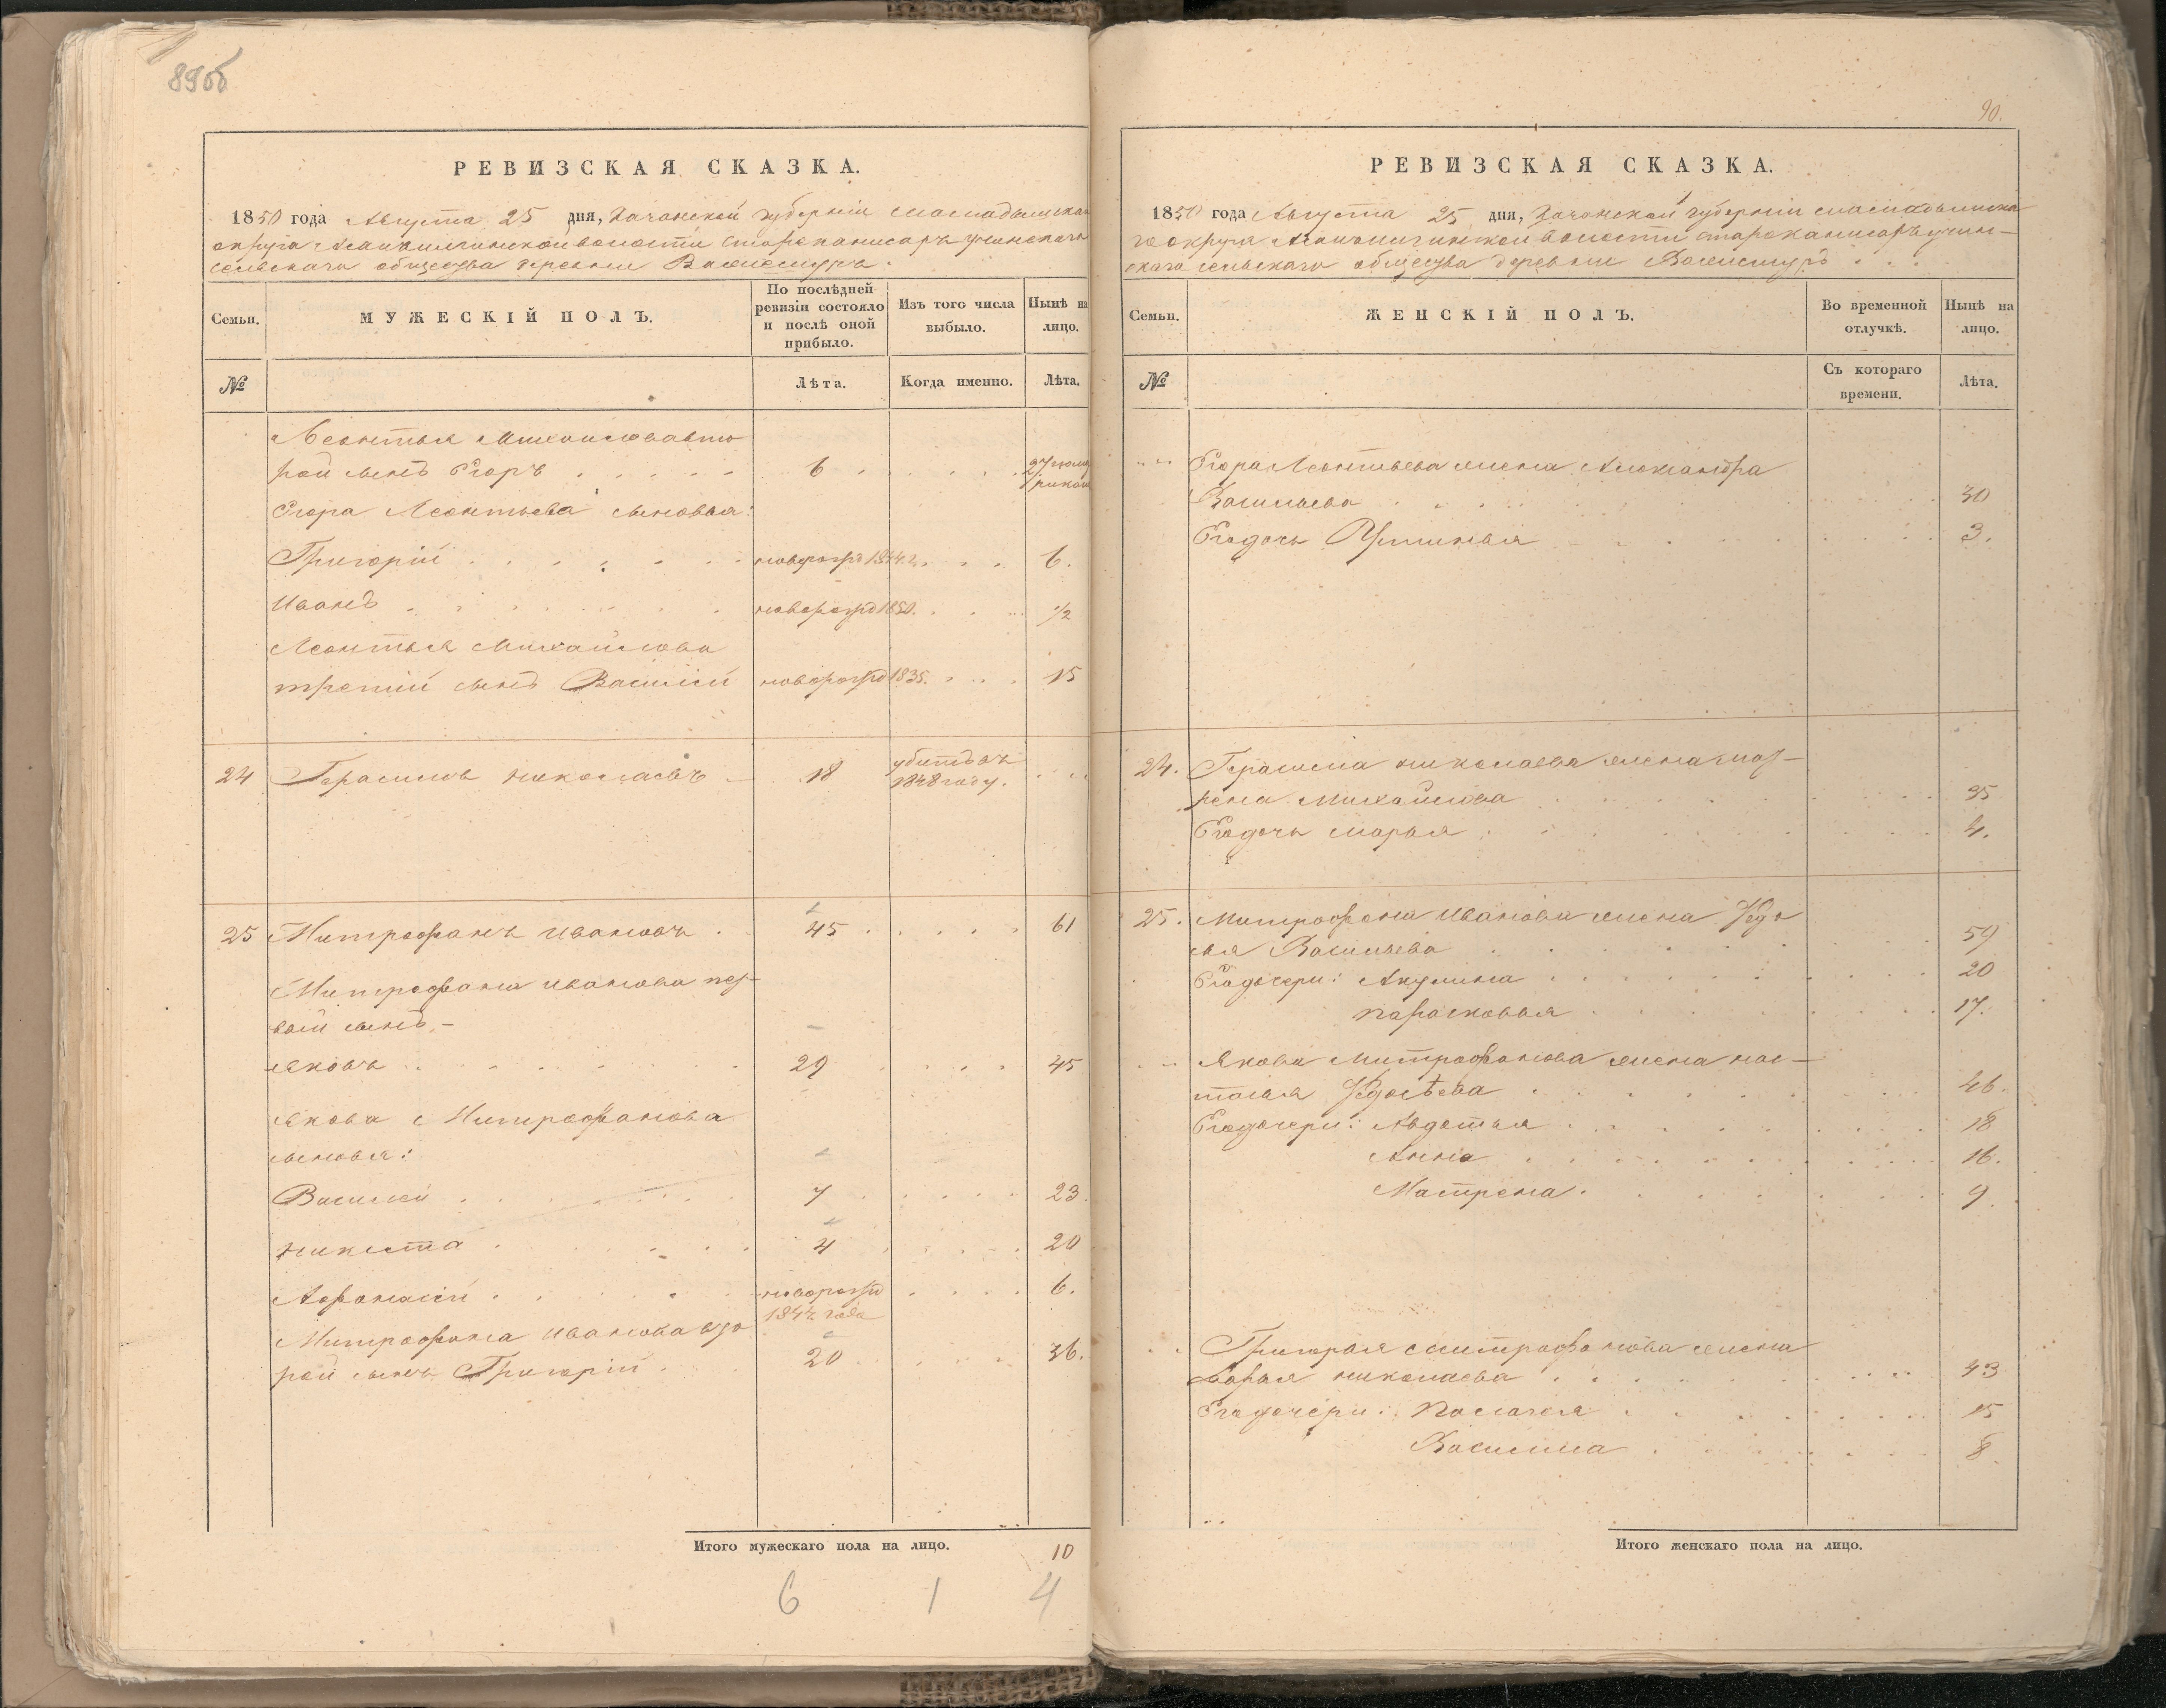 89об
РЕВИЗСКАЯ СКАЗКА.
1850 года Августа 25 дня, Казанской губернии
округа волости
сельскаго общества деревни
Семьи.
МУЖЕСКІЙ ПОЛЪ.
По послѣдней ревизіи состояло и послѣ оной прибыло.
Изъ того числа выбыло.
Нынѣ на лицо.
№
Лѣта.
Когда именно.
Лѣта.
Леонтья Михайлова вто
рой сынъ Егоръ 6 27
Егора Леонтьева сыновья:
Григорій новорожд 1844 г. 6.
Иванъ новорожд 1850. 1/2
Леонтья Михайлова
третій сынъ Василій новорожд 1835. 15
24 Герасимъ Николаевъ 18 1848 году.
25 Митрофанъ Ивановъ 45 61
Митрофана Иванова пер-
вой сынъ -
Яковъ 29 45
Якова Митрофанова
сыновья:
Василій 7 23.
Никита 4 20
Афонасій новорожд 1844 года 6.
Митрофана Иванова вто
рой сынъ Григорій 20 36.
Итого мужескаго пола на лицо. 10
6 1 4
90.
РЕВИЗСКАЯ СКАЗКА.
1850 года Августа 25 дня, Казанской губерніи
го округа волости
скаго сельскаго общества деревни
Семьи.
ЖЕНСКІЙ ПОЛЪ.
Во временной отлучкѣ.
Нынѣ на лицо.
№
Съ котораго времени.
Лѣта.
Егора Леонтьева жена Александра
Васильева 30
Его дочь Устинья 3.
24. Герасима Николаева жена мат-
рена Михайлова 35
Его дочь Марья 4.
25. Митрофана Иванова жена Федо
сья Васильева 59
Его дочери: Акулина 20
Парасковья 17.
Якова Митрофанова жена нас-
тасья Федосѣева 46.
Его дочери: Авдотья 18
Анна 16.
Матрена. 9.
Григорья Митрофанова жена
Дарья Николаева 43
Его дочери: Палагея 15
Василиса 8.
Итого женскаго пола на лицо.